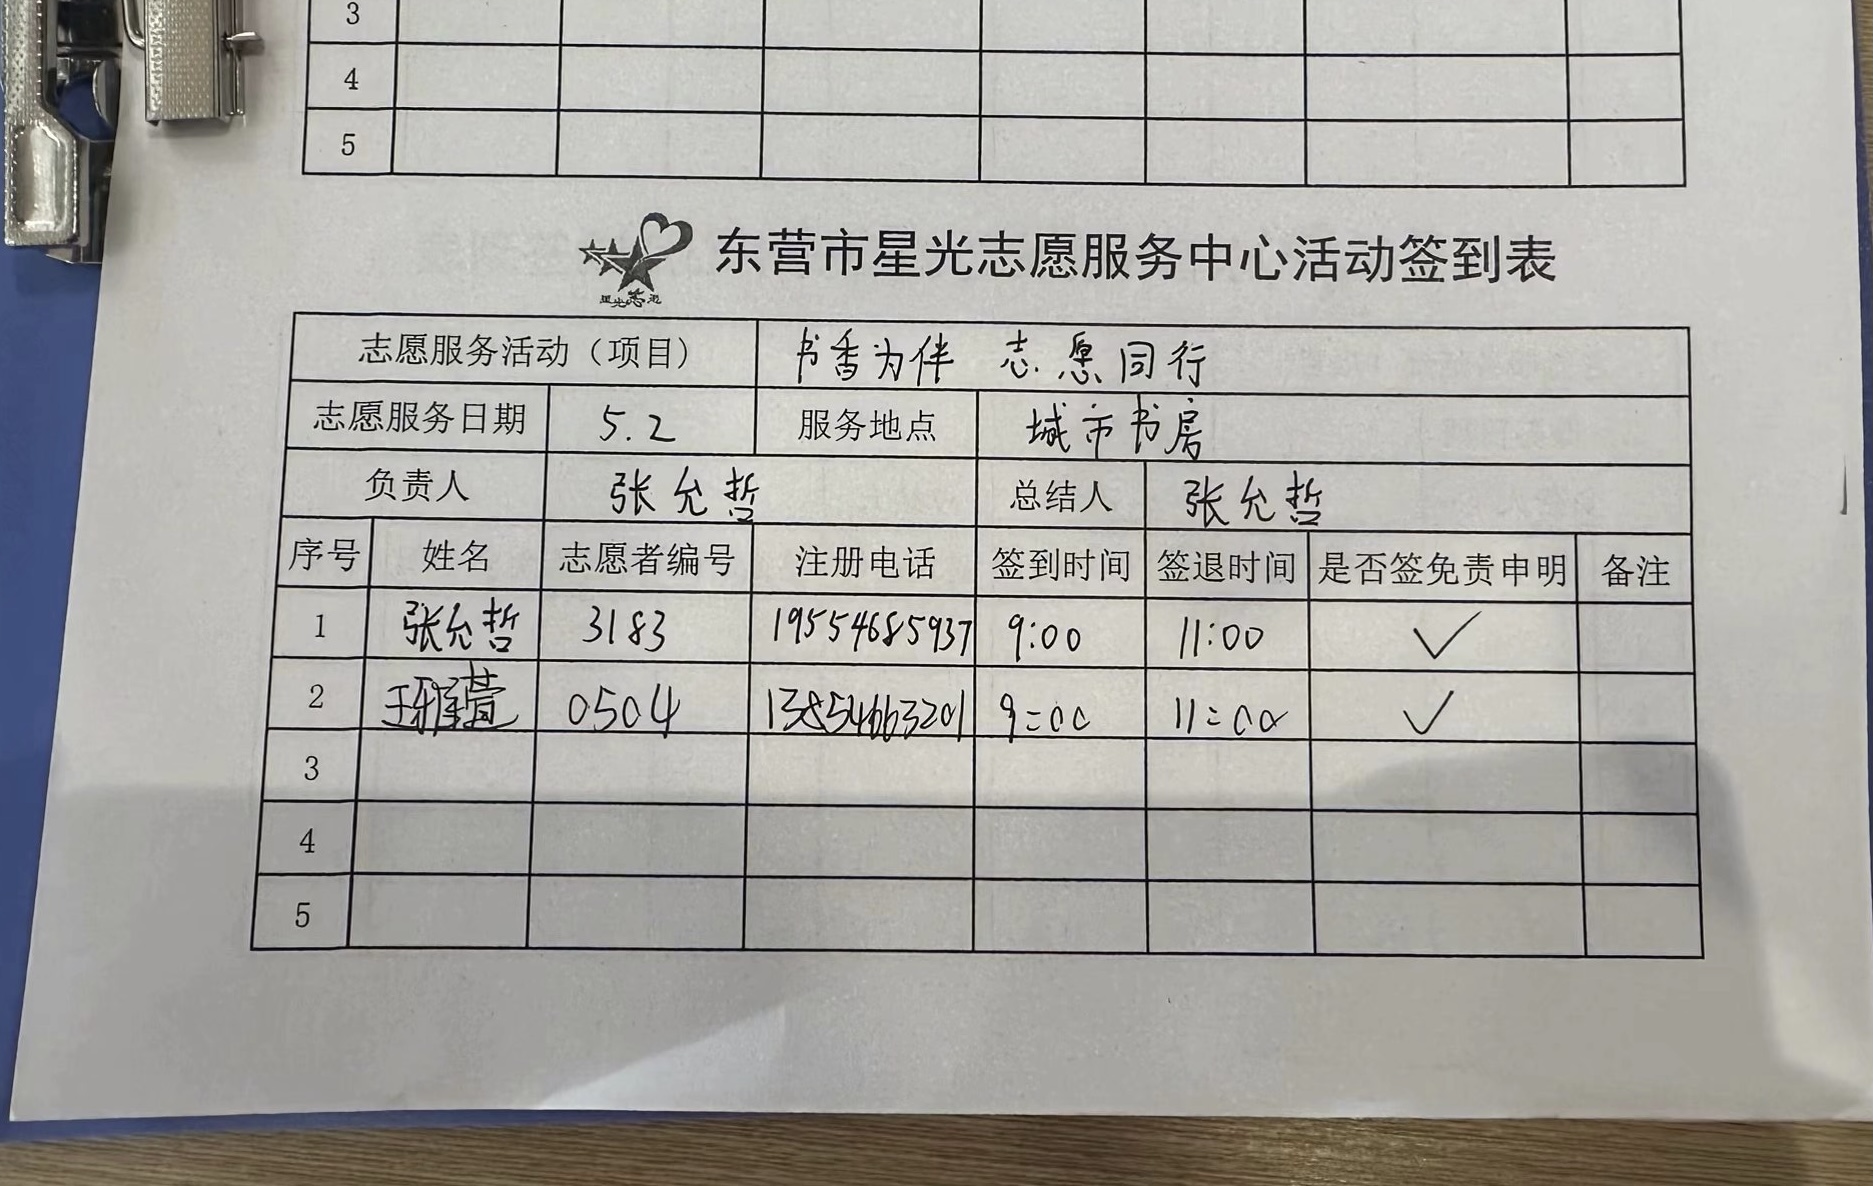 3
4
5
星光志愿
东营市星光志愿服务中心活动签到表
志愿服务活动（项目） 书香为伴 志愿同行
志愿服务日期 5.2 服务地点 城市书房
负责人 张允哲 总结人 张允哲
序号 姓名 志愿者编号 注册电话 签到时间 签退时间 是否签免责申明 备注
1 张允哲 3183 19554685937 9:00 11:00 ✓
2 0504 13854663201 9:00 11:00 ✓
3
4
5